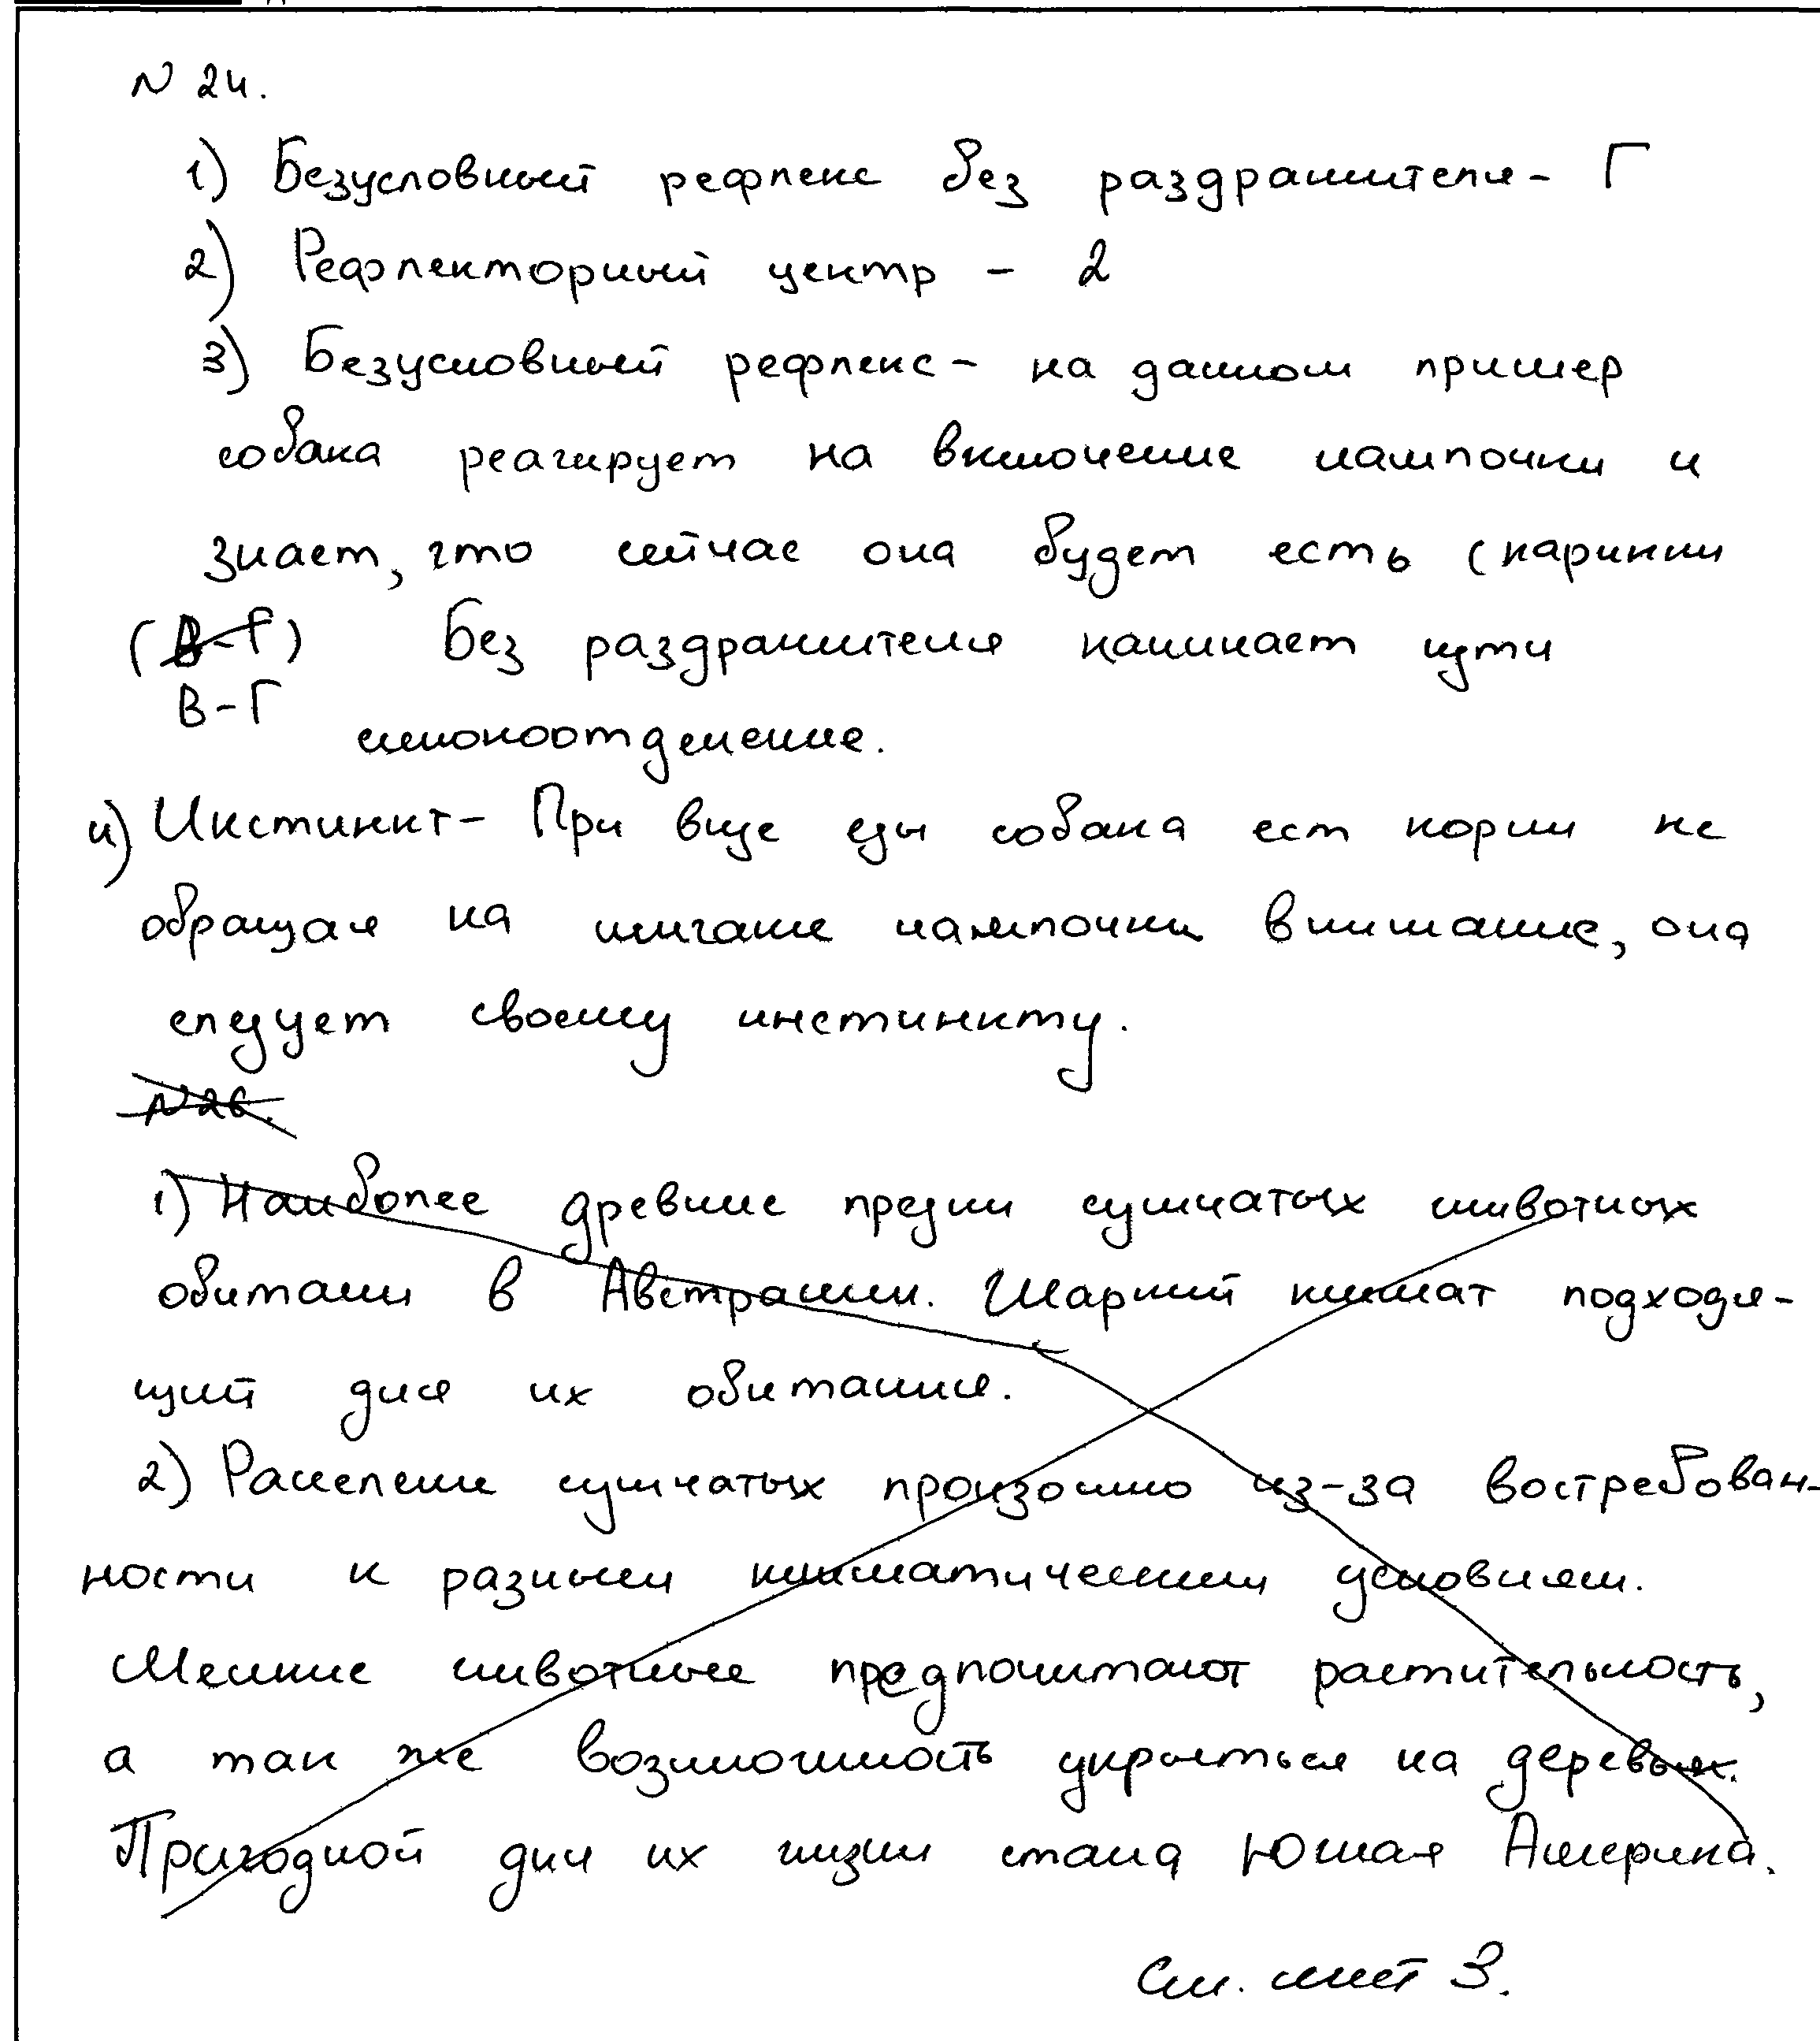 N 24.
1) Безусловный рефлекс без раздражителя - Г
2) Рефлекторный центр - 2
3) Безусловный рефлекс - на данном пример
собака реагирует на включение лампочки и
знает, что сейчас она будет есть (картинки
(В-Г) Без раздражителя начинает идти
В-Г
слюноотделение.
4) Инстинкт - При виде еды собака ест корм не
обращая на мигание лампочки внимание, она
следует своему инстинкту.
N 26.
1) Наиболее древние предки сумчатых животных
обитали в Австралии. Жаркий климат подходя-
щий для их обитания.
2) Расселение сумчатых произошло из-за востребован-
ности к разным климатическим условиям.
Мелкие животные предпочитают растительность,
а так же возможность укрыться на деревьях.
Пригодной для их жизни стала Южная Америка.
См. лист 3.